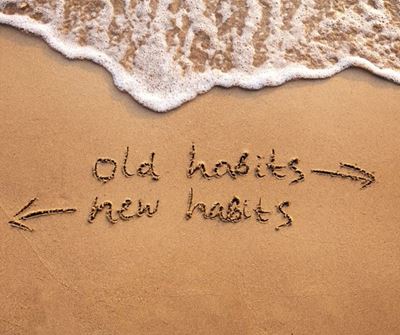 old habits
new habits